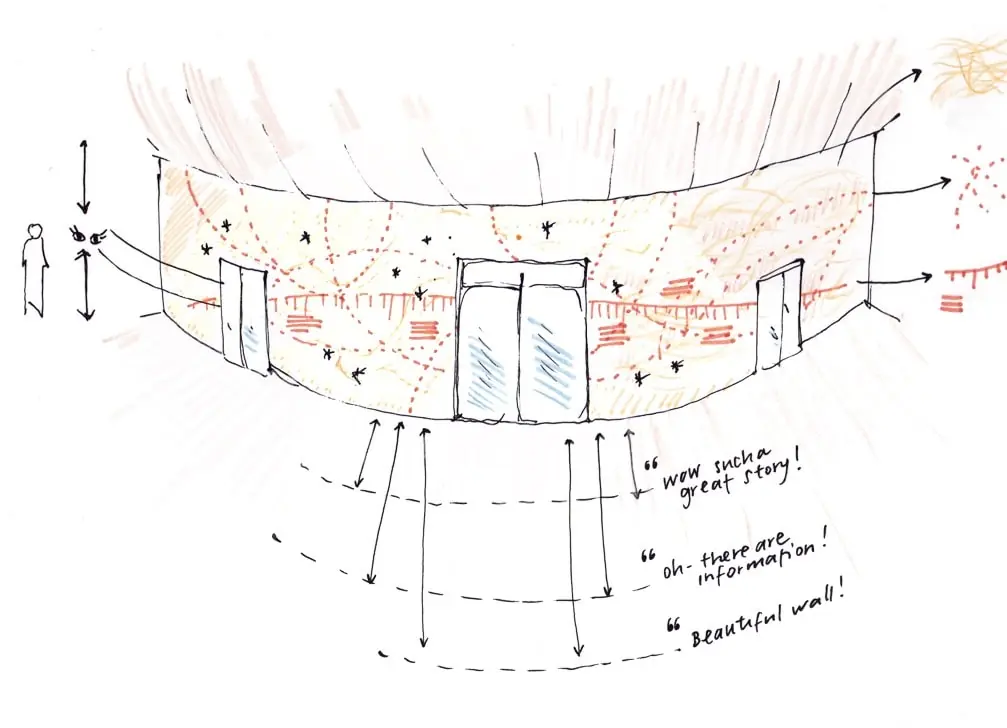 “ wow such a
great story!
“ oh- there are
information!
“ Beautiful wall!